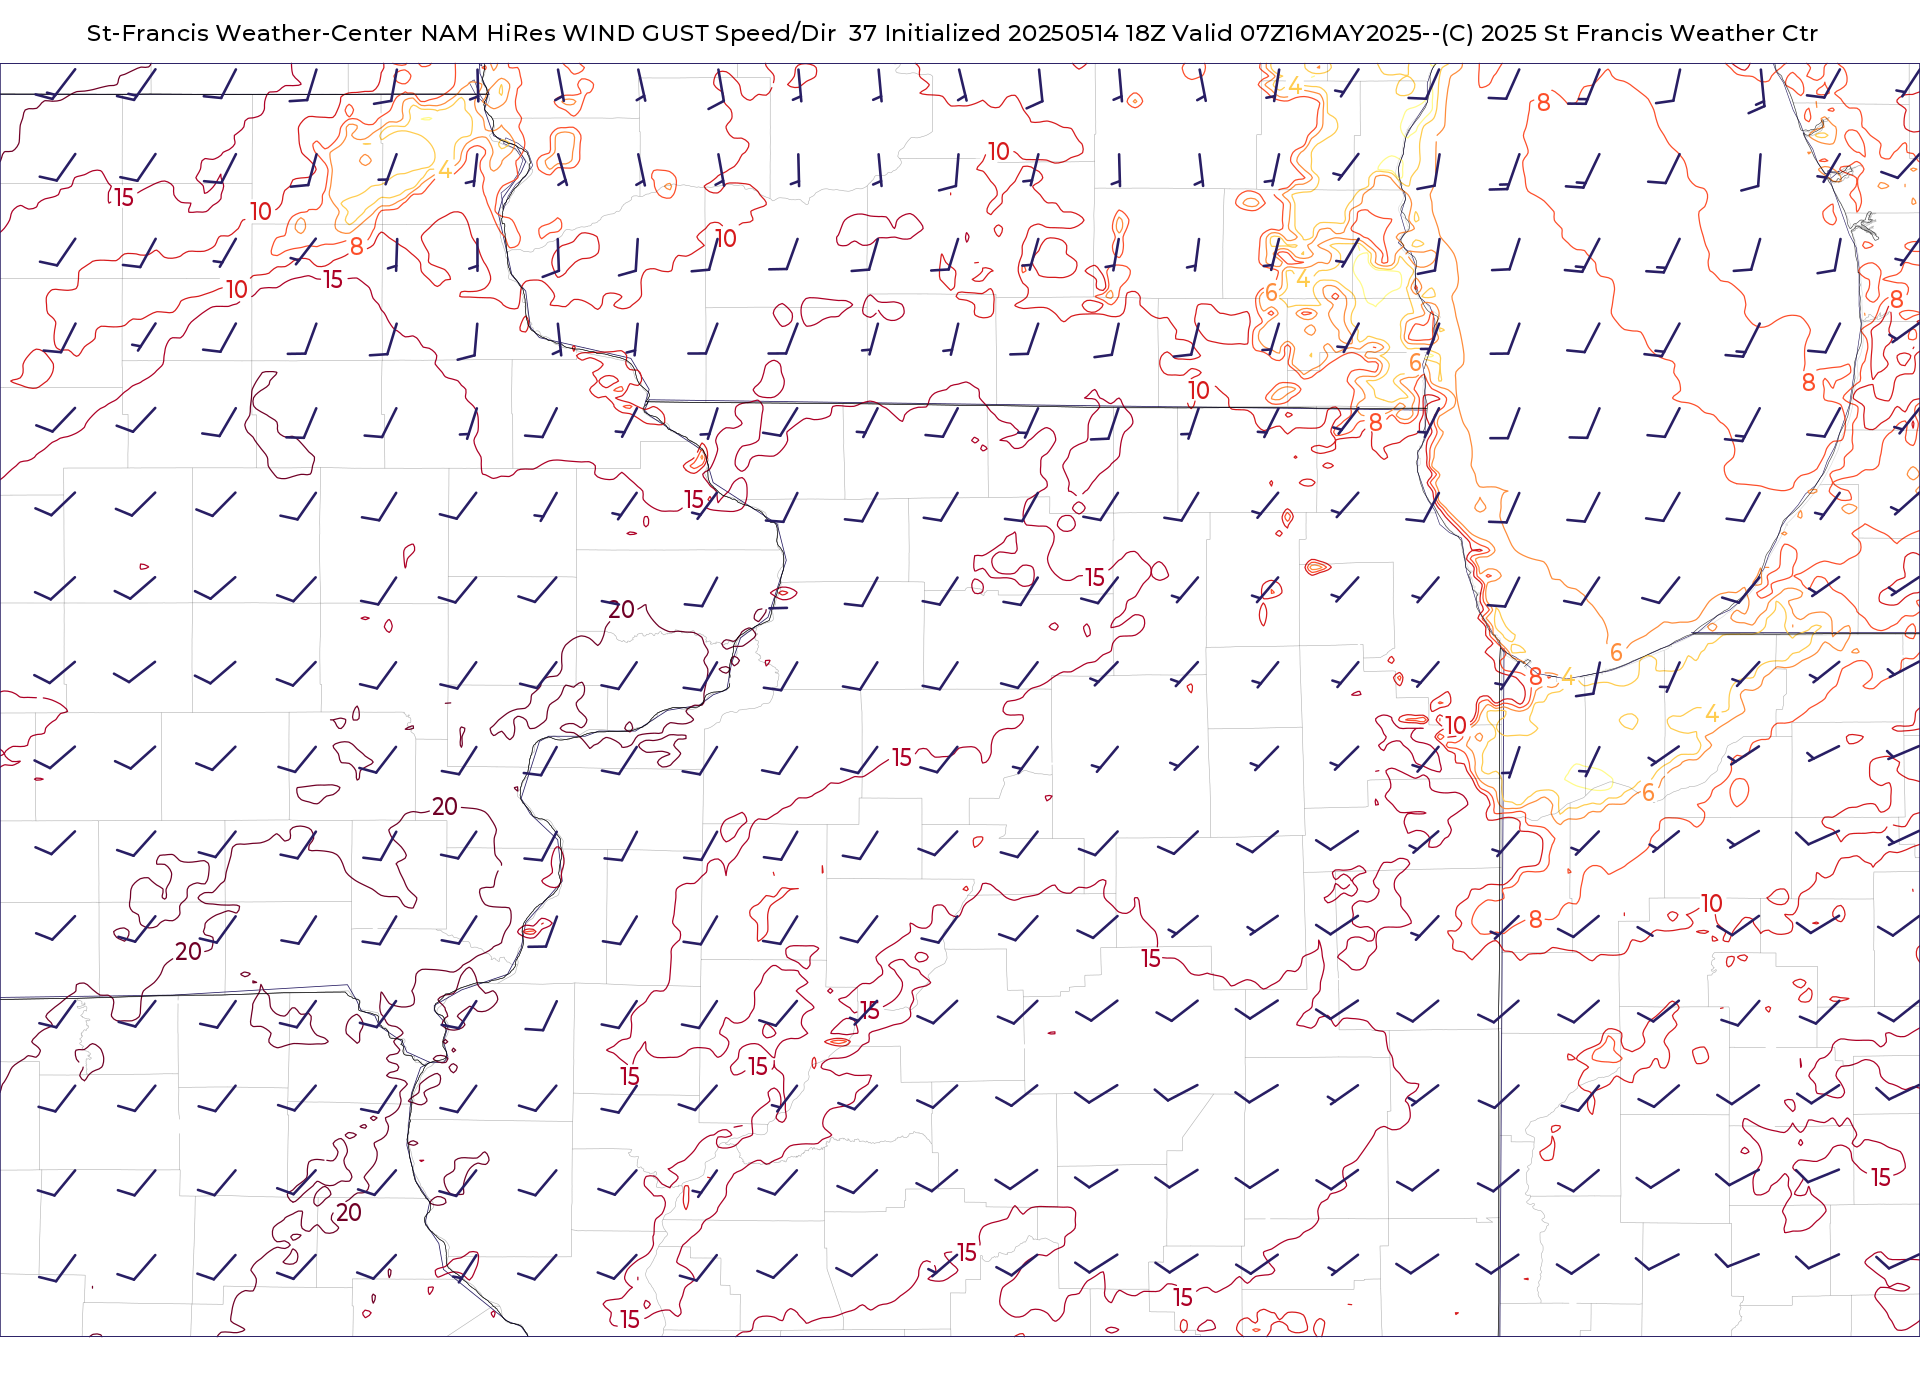 St-Francis Weather-Center NAM HiRes WIND GUST Speed/Dir 37 Initialized 20250514 18Z Valid 07Z16MAY2025--(C) 2025 St Francis Weather Ctr
4
8
10
4
15
10
10
8
10
15
4
6
8
6
8
10
8
15
15
20
6
8
4
4
10
15
6
20
10
8
20
15
15
15
15
15
20
15
15
15